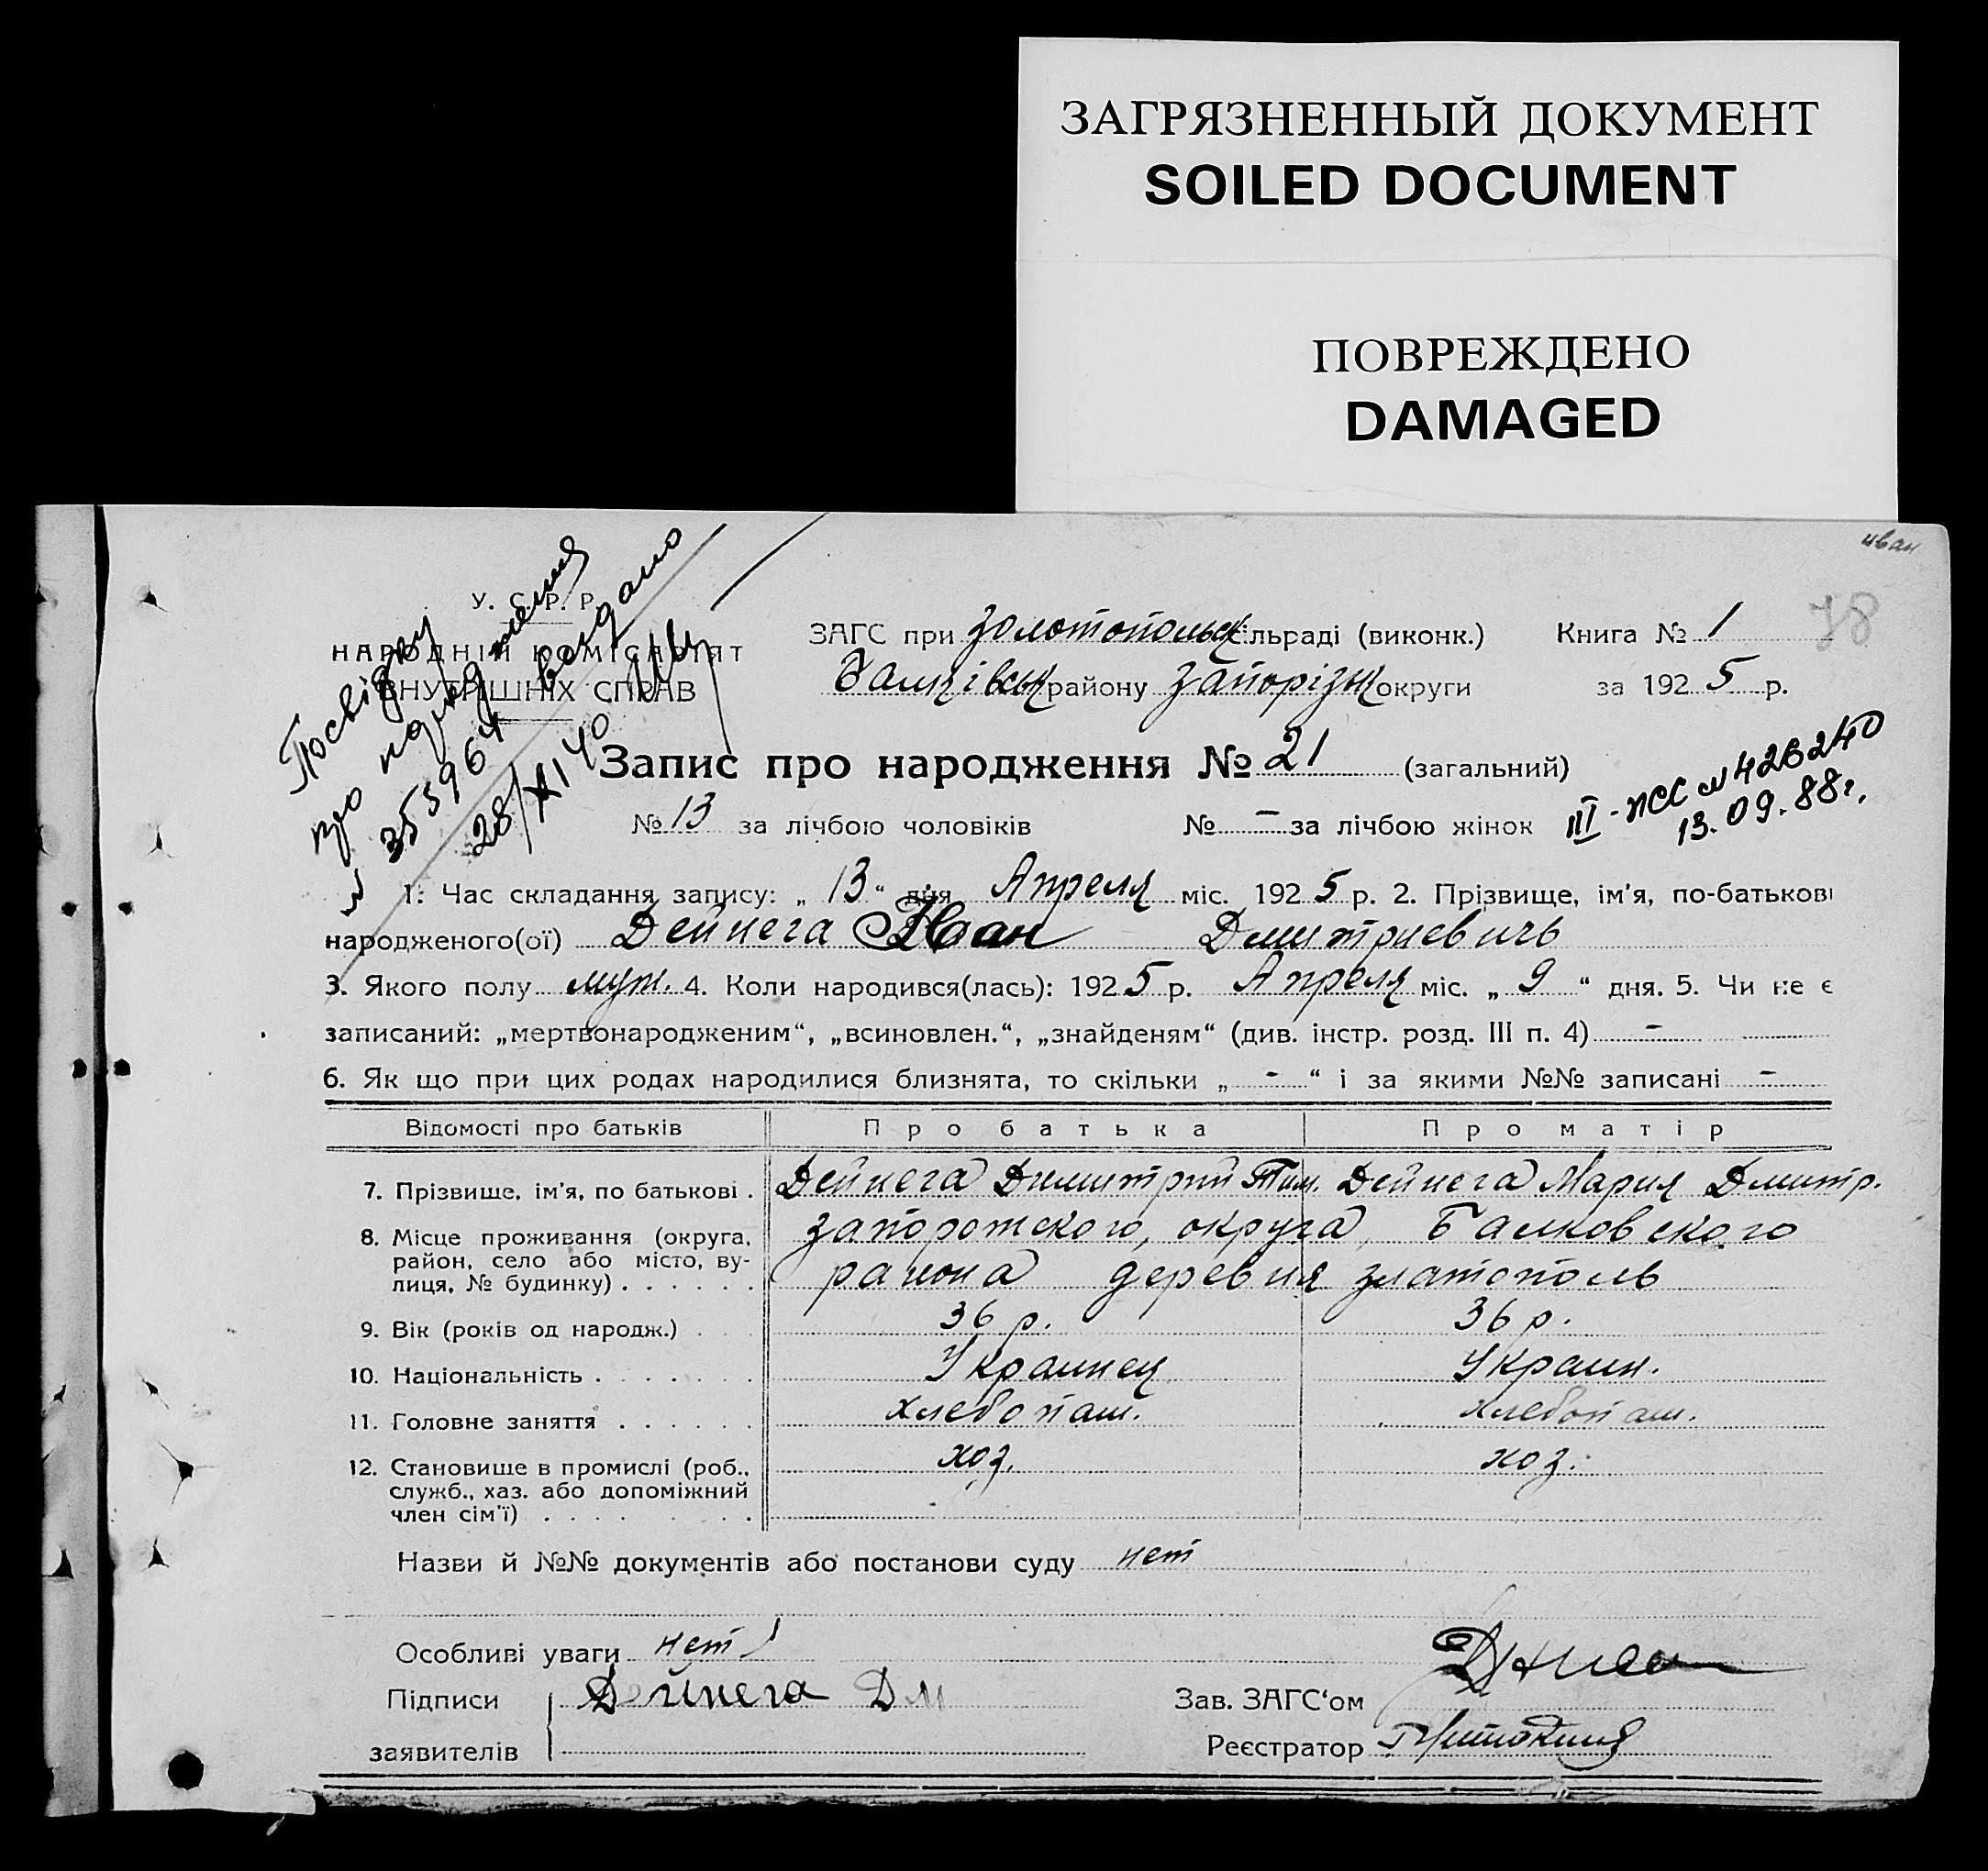 ЗАГРЯЗНЕННЫЙ ДОКУМЕНТ
SOILED DOCUMENT
ПОВРЕЖДЕНО
DAMAGED
Иван
78
У. С. Р. Р.
НАРОДНІЙ КОМІСАРІЯТ
ВНУТРІШНІХ СПРАВ
Посвідку
про народження
видано
№ 355964
28/XI 40
ЗАГС при Золотопольск сільраді (виконк.) Книга № 1
Балківськ району Запорізьк округи за 1925 р.
Запис про народження № 21 (загальний)
№ 13 за лічбою чоловіків № – за лічбою жінок
III-ЖС № 426240
13.09.88г.
1. Час складання запису: „ 13 “ дня Апреля міс. 1925 р. 2. Прізвище, ім'я, по-батькові
народженого(ої) Дейнега Иван Дмитриевичь
3. Якого полу муж. 4. Коли народився(лась): 1925 р. Апреля міс. „ 9 “ дня. 5. Чи не є
записаний: „мертвонародженим“, „всиновлен.“, „знайденям“ (див. інстр. розд. III п. 4) –
6. Як що при цих родах народилися близнята, то скільки „ - “ і за якими №№ записані -
Відомості про батьків Про батька Про матір
7. Прізвище, ім'я, по батькові . Дейнега Димитрий Тим. Дейнега Мария Дмитр.
8. Місце проживання (округа, Запорожского, округа, Балковского
район, село або місто, ву-
лиця, № будинку) . . . . . . района деревня Златополь
9. Вік (років од народж.) . . . 36 р. 36 р.
10. Національність . . . . . . . Украинец Украин.
11. Головне заняття . . . . . . хлебопаш. хлебопаш.
12. Становище в промислі (роб., хоз. хоз.
служб., хаз. або допоміжний
член сім'ї) . . . . . . . .
Назви й №№ документів або постанови суду нет
Особливі уваги нет
Підписи Дейнега Дм
Зав. ЗАГС'ом
заявителів
Реєстратор